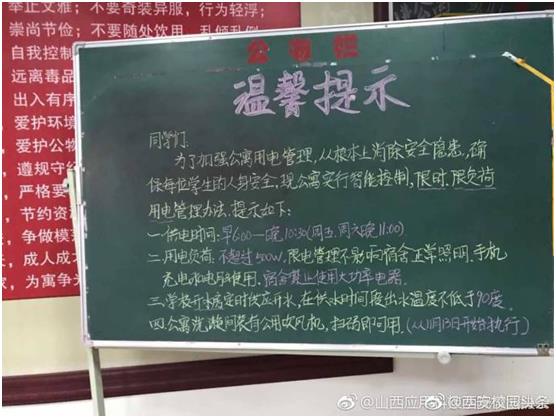 举止文雅；不要奇装异服，行为轻浮；
崇尚节俭；不要随处饮用，乱倾乱倒
自我控制
远离毒品
出入有序
爱护环境
爱护公物
遵规守纪
严格要
节约资
争做模
成人成
为寓争光
公告栏
温馨提示
同学们：
为了加强公寓用电管理，从根本上消除安全隐患，确
保每位学生的人身安全，现公寓实行智能控制，限时、限负荷
用电管理办法，提示如下：
一.供电时间：早6:00—晚10:30(周五、周六晚11:00)
二.用电负荷：不超过500W，限电管理不影响宿舍正常照明、手机
充电、电脑使用，宿舍禁止使用大功率电器。
三.学校开水房定时供应开水，在供水时间段出水温度不低于90度。
四.公寓洗漱间装有公用吹风机，扫码即可用。(从11月13日开始执行)
@山西应用科 @西安校园头条